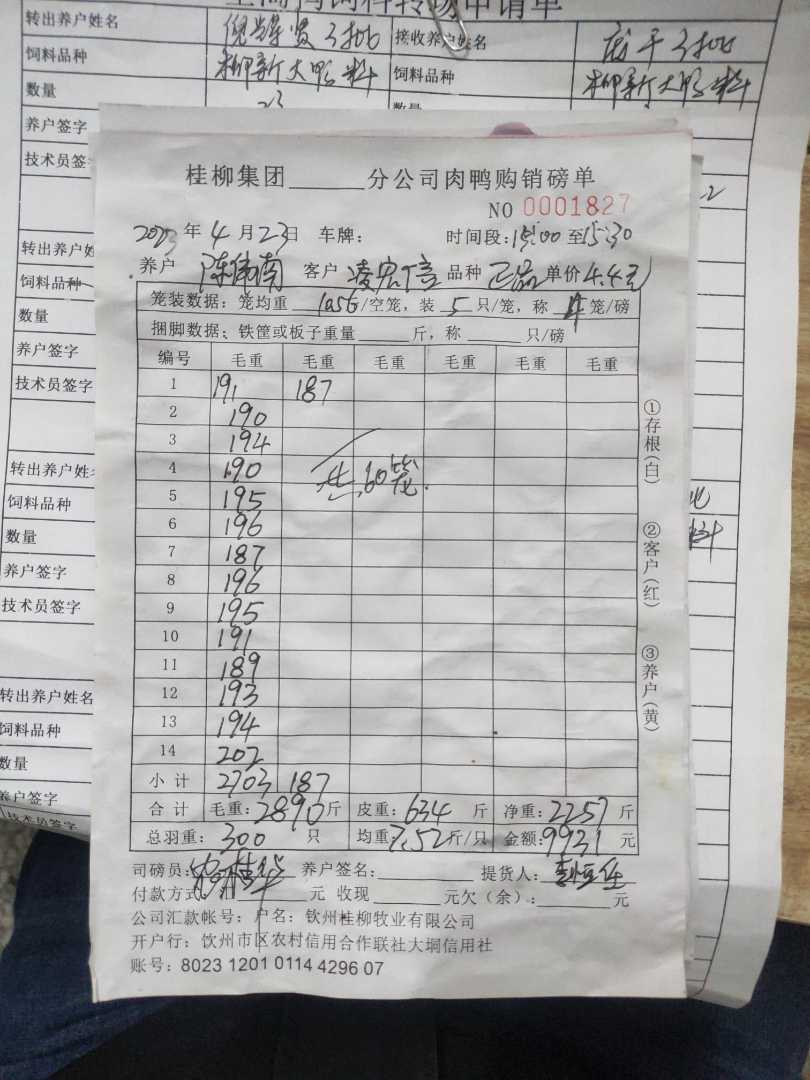 转出养户姓名 接收养户姓名
饲料品种 柳新大鸭料 饲料品种 柳新大鸭料
数量 23 数量
养户签字
技术员签
转出养户姓
饲料品种
数量
养户签字
技术员签字
转出养户姓名
饲料品种
数量
养户签字
技术员签字
转出养户姓名
饲料品种
数量
养户签字
技术员签字
桂柳集团______分公司肉鸭购销磅单
NO 0001827
2023年4月23日 车牌: 时间段:15:00至15:30
养户 陈伟南 客户 凌宏信 品种 正品 单价4.4元
笼装数据:笼均重 10.56/空笼,装 5 只/笼,称 4 笼/磅
捆脚数据:铁筐或板子重量______斤,称______只/磅
编号 毛重 毛重 毛重 毛重 毛重 毛重
1 191 187
2 190
3 194
4 190 共60笼.
5 195
6 196
7 187
8 196
9 195
10 191
11 189
12 193
13 194
14 202
小计 2703 187
合计 毛重:2890斤 皮重:634斤 净重:2257斤
总羽重:300只 均重7.52斤/只 金额:9931元
司磅员: 养户签名: 提货人:
付款方式: 元 收现______元欠(余):______元
公司汇款帐号:户名:钦州桂柳牧业有限公司
开户行:钦州市区农村信用合作联社大垌信用社
账号:8023 1201 0114 4296 07
①存根(白)
②客户(红)
③养户(黄)